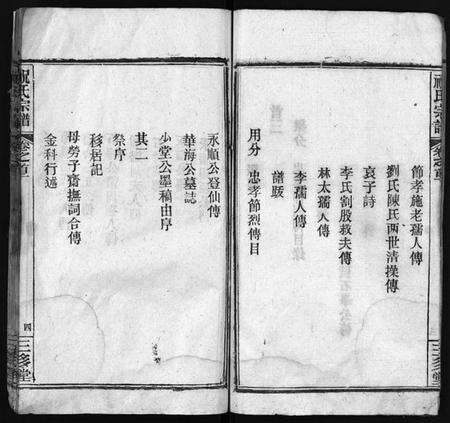 祝氏宗譜
卷之首
三多堂
節孝施老孺人傳
劉氏陳氏兩世清操傳
哀子詩
李氏割股救夫傳
林太孺人傳
李孺人傳
譜跋
用分
忠孝節烈傳目
永順公登仙傳
華海公墓誌
少堂公墨稿由序
其二
祭序
移居記
母勞子齋撫詞合傳
金科行述
祝氏宗譜
卷之首
四
三多堂